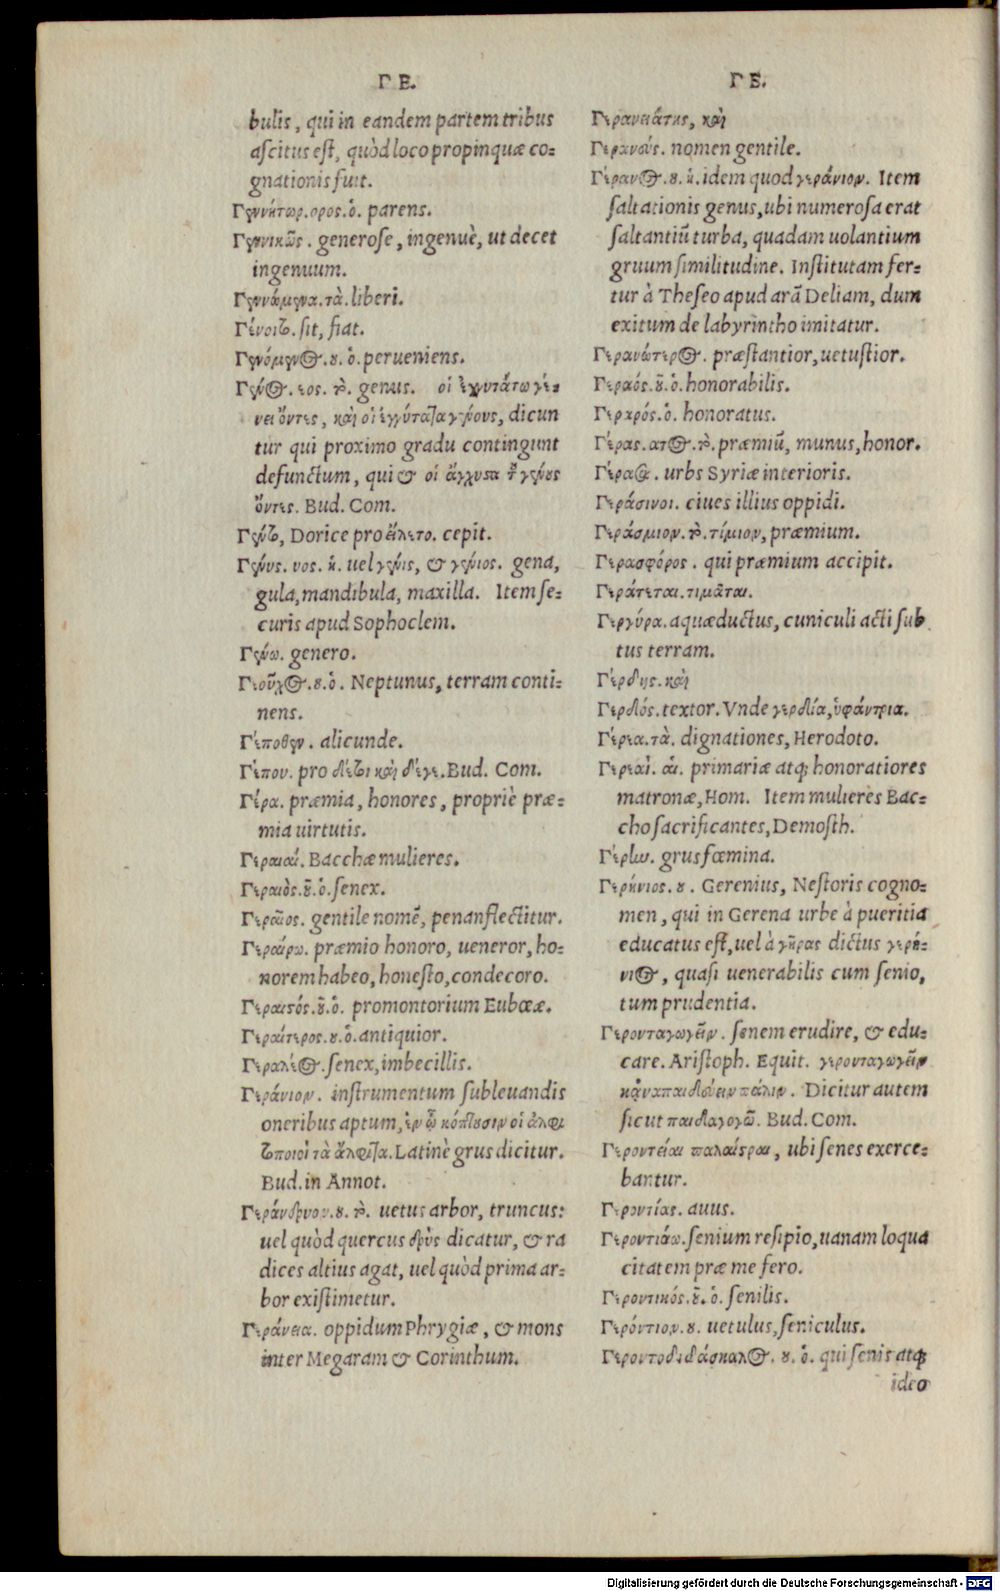 ΓΕ.
bulis, qui in eandem partem tribus
ascitus est, quòd loco propinquæ co=
gnationis fuit.
Γεννήτωρ.ορος.ὁ. parens.
Γεννικῶς. generose, ingenuè, ut decet
ingenuum.
Γεννάμενα.τὰ. liberi.
Γένοιτο. sit, fiat.
Γενόμενος.ου.ὁ. perueniens.
Γένος.εος.τὸ. genus. οἱ ἐγγυτάτω γέ=
νει ὄντες, καὶ οἱ ἐγγύτατα γένους, dicun
tur qui proximo gradu contingunt
defunctum, qui & οἱ ἄγχιστα τοῦ γένους
ὄντες. Bud. Com.
Γέντο, Dorice pro εἵλετο. cepit.
Γένυς.υος.ἡ. uel γένις, & γένιος. gena,
gula, mandibula, maxilla. Item se=
curis apud Sophoclem.
Γένω. genero.
Γεοῦχος.ου.ὁ. Neptunus, terram conti=
nens.
Γέποθεν. alicunde.
Γέπου. pro δέτοι καὶ δέγε. Bud. Com.
Γέρα. præmia, honores, propriè præ=
mia uirtutis.
Γεραιαί. Bacchæ mulieres.
Γεραιὸς.οῦ.ὁ. senex.
Γεραῖος. gentile nomẽ, penanflectitur.
Γεραίρω. præmio honoro, ueneror, ho=
norem habeo, honesto, condecoro.
Γεραιστός.οῦ.ὁ. promontorium Eubœæ.
Γεραίτερος.ου.ὁ. antiquior.
Γεραλέος. senex, imbecillis.
Γεράνιον. instrumentum subleuandis
oneribus aptum, ἐν ᾧ κόπτουσιν οἱ ἀλφι
τοποιοὶ τὰ ἄλφιτα. Latinè grus dicitur.
Bud. in Annot.
Γεράνδρυον.ου.τὸ. uetus arbor, truncus:
uel quòd quercus δρὺς dicatur, & ra
dices altius agat, uel quòd prima ar=
bor existimetur.
Γεράνεια. oppidum Phrygiæ, & mons
inter Megaram & Corinthum.
ΓΕ.
Γερανειάτης, καὶ
Γερανεύς. nomen gentile.
Γέρανος.ου.ἡ. idem quod γεράνιον. Item
saltationis genus, ubi numerosa erat
saltantiũ turba, quadam uolantium
gruum similitudine. Institutam fer=
tur à Theseo apud arã Deliam, dum
exitum de labyrintho imitatur.
Γερανώτερος. præstantior, uetustior.
Γεραός.οῦ.ὁ. honorabilis.
Γεραρός.ὁ. honoratus.
Γέρας.ατος.τὸ. præmiũ, munus, honor.
Γέρασα. urbs Syriæ interioris.
Γεράσινοι. ciues illius oppidi.
Γεράσμιον.τὸ.τίμιον, præmium.
Γερασφόρος. qui præmium accipit.
Γεράτεται.τιμᾶται.
Γεργύρα. aquæductus, cuniculi acti sub
tus terram.
Γέρδης. καὶ
Γερδιός. textor. Vnde γερδία, ὑφάντρια.
Γέρεα.τὰ. dignationes, Herodoto.
Γερεαὶ. αἱ. primariæ atq; honoratiores
matronæ, Hom. Item mulieres Bac=
cho sacrificantes, Demosth.
Γέρην. grus fœmina.
Γερήνιος.ου. Gerenius, Nestoris cogno=
men, qui in Gerena urbe à pueritia
educatus est, uel à γῆρας dictus γερή=
νιος, quasi uenerabilis cum senio,
tum prudentia.
Γερονταγωγεῖν. senem erudire, & edu=
care. Aristoph. Equit. γερονταγωγεῖν
κἀναπαιδεύειν πάλιν. Dicitur autem
sicut παιδαγογῶ. Bud. Com.
Γεροντεῖαι παλαίστραι, ubi senes exerce=
bantur.
Γεροντίας. auus.
Γεροντιάω. senium resipio, uanam loqua
citatem præ me fero.
Γεροντικός.οῦ.ὁ. senilis.
Γερόντιον.ου. uetulus, seniculus.
Γεροντοδιδάσκαλος.ου.ὁ. qui senis atq;
ideo
Digitalisierung gefördert durch die Deutsche Forschungsgemeinschaft - DFG